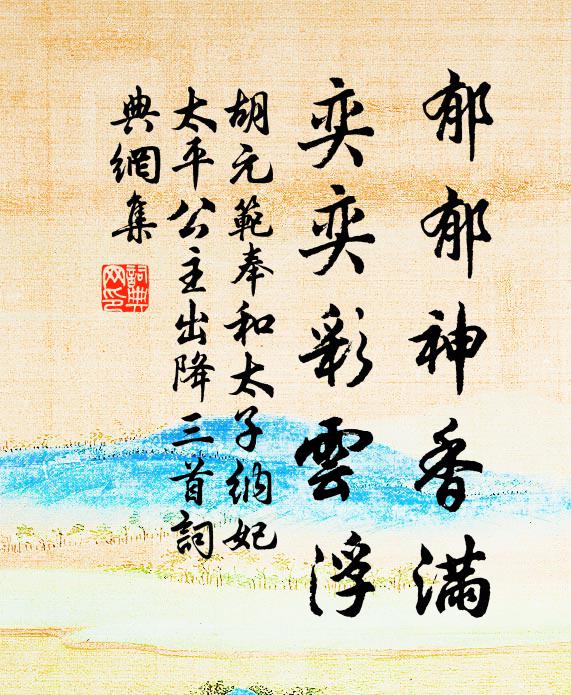 郁郁神香滿
奕奕彩雲浮
胡元範奉和太子納妃
太平公主出降三首詞
典網集
詞典網印